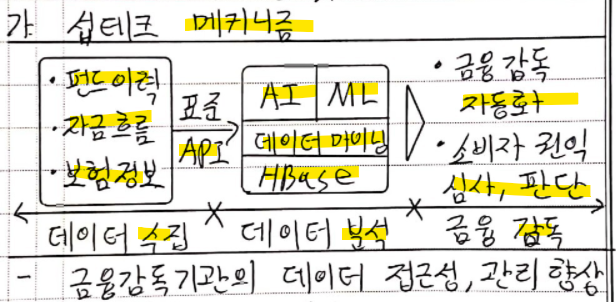 가. 섭테크 메커니즘
· 펀드이력
· 자금흐름
· 보험정보
표준
API
AI ML
데이터 마이닝
HBase
· 금융 감독
자동화
· 소비자 권익
심사, 판단
데이터 수집
데이터 분석
금융 감독
- 금융감독기관의 데이터 접근성, 관리 향상